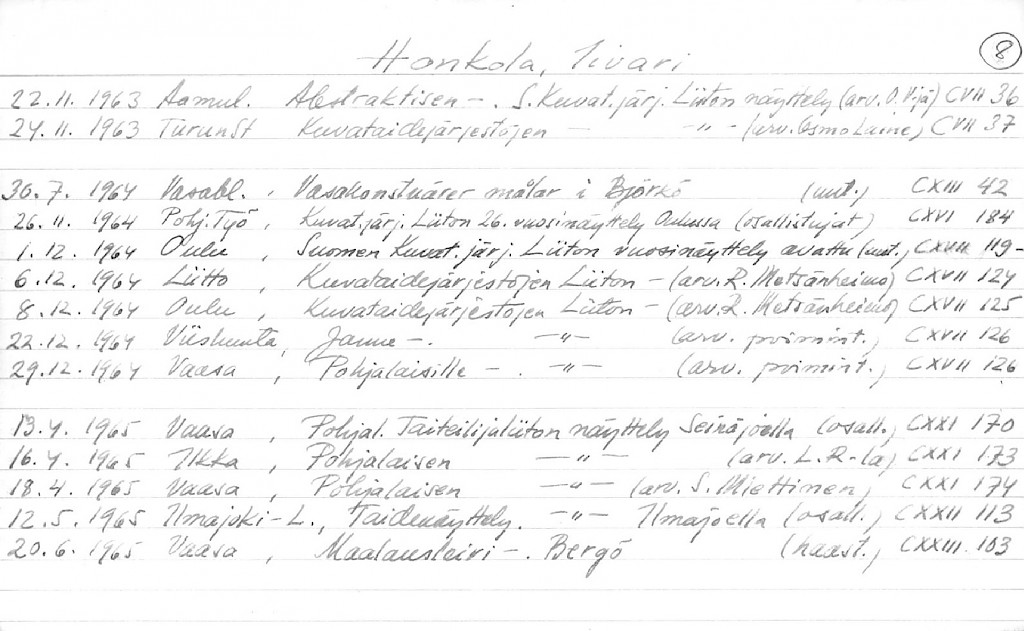 8
Honkola, Iivari
22.11.1963 Aamul. Abstraktisen -. S. Kuvat.järj. Liiton näyttely (arv. O. V-jä) CVII 36
24.11.1963 TurunSt Kuvataidejärjestöjen - -"- (arv. Osmo Laine) CVII 37
30.7.1964 Vasabl., Vasakonstnärer målar i Björkö (mt.) CXIII 42
26.11.1964 Pohj.Työ, Kuvat.järj. Liiton 26. vuosinäyttely Oulussa (osallistujat) CXVI 184
1.12.1964 Oulu, Suomen Kuvat.järj. Liiton vuosinäyttely avattu (mt.) CXVII 119-
6.12.1964 Liitto, Kuvataidejärjestöjen Liiton - (arv. R. Metsänheimo) CXVII 124
8.12.1964 Oulu, Kuvataidejärjestöjen Liiton - (arv. R. Metsänheimo) CXVII 125
22.12.1964 Viishunta, Janne -. -"- (arv. poimint.) CXVII 126
29.12.1964 Vaasa, Pohjalaisille -. -"- (arv. poimint.) CXVII 126
13.4.1965 Vaasa, Pohjal. Taiteilijaliiton näyttely Seinäjoella (osall.) CXXI 170
16.4.1965 Ilkka, Pohjalaisen -"- (arv. L. R-la) CXXI 173
18.4.1965 Vaasa, Pohjalaisen -"- (arv. S. Miettinen) CXXI 174
12.5.1965 Ilmajoki-L., Taidenäyttely. -"- Ilmajoella (osall.) CXXII 113
20.6.1965 Vaasa, Maalausleiri -. Bergö (haast.) CXXIII 103